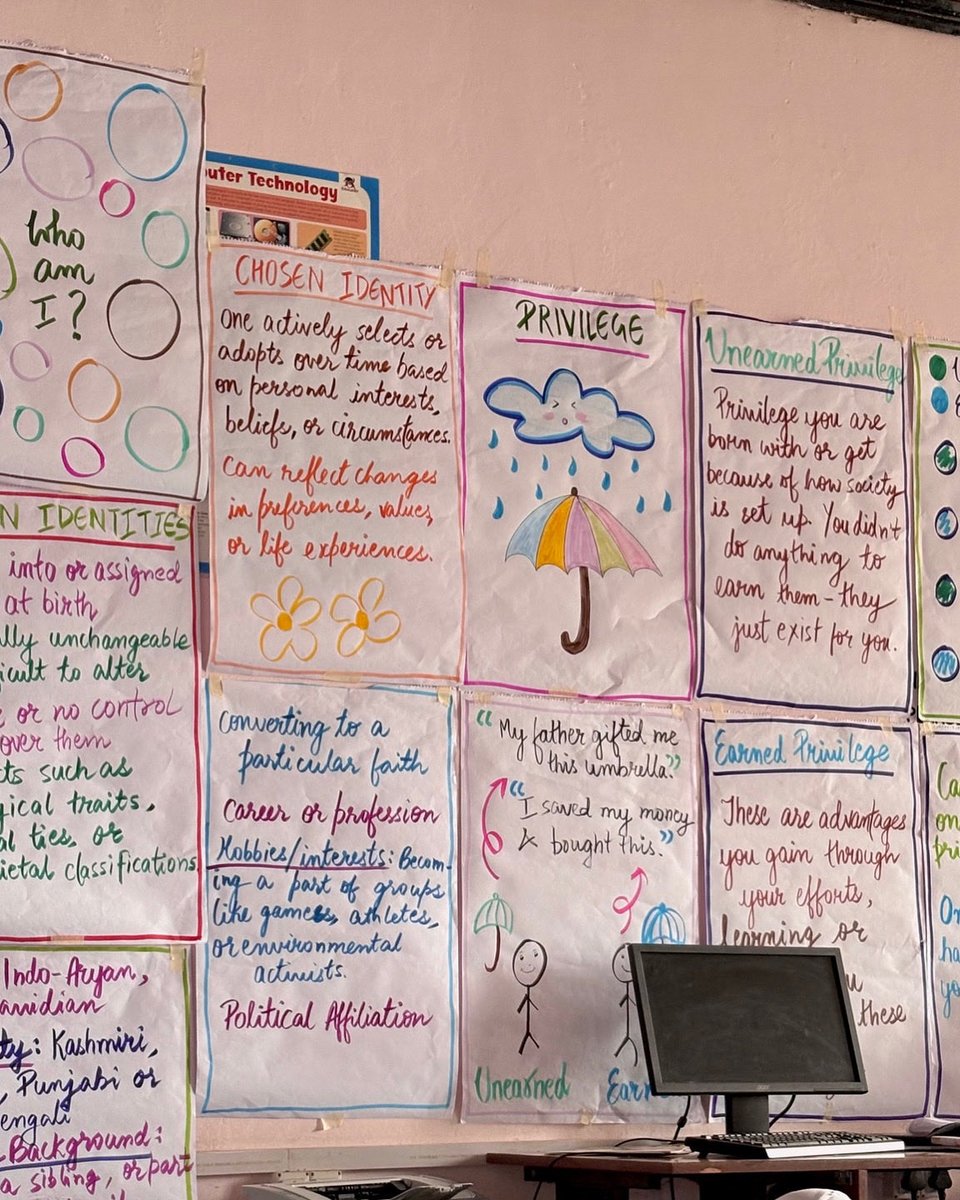 Who
am
I?
uter Technology
CHOSEN IDENTITY
One actively selects or
adopts over time based
on personal interests,
beliefs, or circumstances.
Can reflect changes
in preferences, values,
or life experiences.
PRIVILEGE
Unearned Privilege
Privilege you are
born with or get
because of how society
is set up. You didn't
do anything to
earn them - they
just exist for you.
N IDENTITIES
into or assigned
at birth
lly unchangeable
icult to alter
or no control
over them
cts such as
gical traits,
al ties, or
ietal classifications.
Converting to a
particular faith
Career or profession
Hobbies/interests: Becom-
ing a part of groups
like gamess, athletes,
or environmental
activists.
Political Affiliation
"My father gifted me
this umbrella."
"I saved my money
& bought this."
Unearned
Earn
Earned Privilege
These are advantages
you gain through
your efforts,
learning or
u
these
Ca
on
pri
On
ha
yo
Indo-Aryan,
avidian
ty: Kashmiri,
, Punjabi or
engali
Background:
a sibling, or part
acer